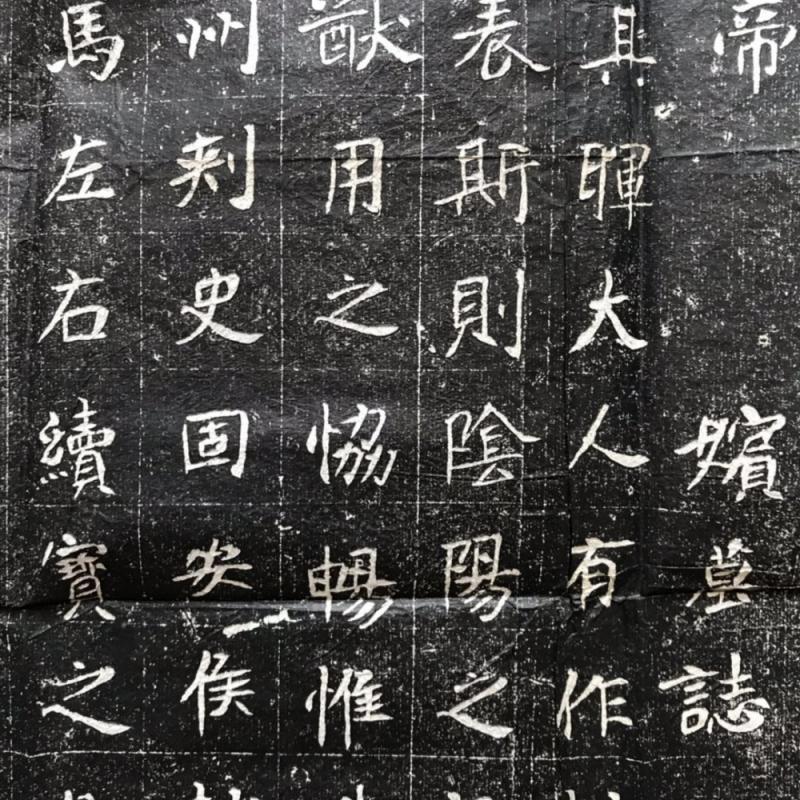 帝 嬪墓誌
其暉大人有作
表斯則陰陽之
猷用之恊暢惟
州刺史固安侯
馬左右續寶之